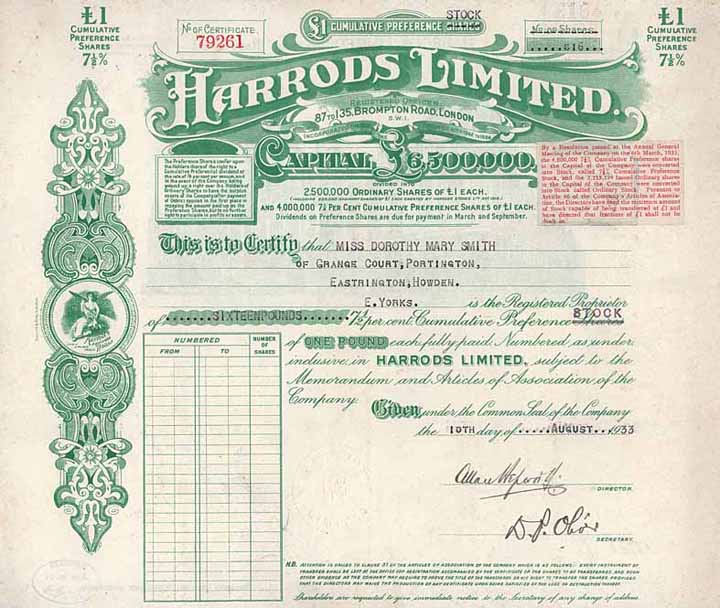 £1
CUMULATIVE
PREFERENCE
SHARES
7½%
No OF CERTIFICATE
79261
£1 CUMULATIVE PREFERENCE SHARES
STOCK
No. OF Shares
.....£16....
£1
CUMULATIVE
PREFERENCE
SHARES
7½%
HARRODS LIMITED.
REGISTERED OFFICES
87 TO 135, BROMPTON ROAD, LONDON
S.W.1.
CAPITAL, £6,500,000,
DIVIDED INTO
2,500,000 ORDINARY SHARES OF £1 EACH.
AND 4,000,000 7½ PER CENT CUMULATIVE PREFERENCE SHARES OF £1 EACH.
Dividends on Preference Shares are due for payment in March and September.
The Preference Shares confer upon
the Holders thereof the right to a
Cumulative Preferential dividend at
By a Resolution passed at the Annual General
Meeting of the Company on the 6th March, 1933,
the 4,000,000 7½% Cumulative Preference shares
in the Capital of the Company were converted
into Stock called 7½% Cumulative Preference
Stock, and the 2,213,119 issued Ordinary shares
in the Capital of the Company were converted
into Stock called Ordinary Stock. Pursuant to
Article 46 of the Company's Articles of Associa-
tion, the Directors have fixed the minimum amount
of Stock capable of being transferred at £1 and
have directed that fractions of £1 shall not be
dealt in.
This is to Certify that MISS DOROTHY MARY SMITH
OF GRANGE COURT, PORTINGTON,
EASTRINGTON, HOWDEN.
E.YORKS. is the Registered Proprietor
of .......SIXTEENPOUNDS....... 7½ per cent. Cumulative Preference Shares
STOCK
of ONE POUND each, fully paid, Numbered, as under,
inclusive, in HARRODS LIMITED, subject to the
Memorandum and Articles of Association of the
Company.
Given under the Common Seal of the Company
the 10TH day of .....AUGUST..1933
NUMBERED
NUMBER OF SHARES
FROM TO
DIRECTOR.
SECRETARY.
N.B. ATTENTION IS CALLED TO CLAUSE 31 OF THE ARTICLES OF ASSOCIATION OF THE COMPANY WHICH IS AS FOLLOWS: EVERY INSTRUMENT OF
TRANSFER SHALL BE LEFT AT THE OFFICE FOR REGISTRATION ACCOMPANIED BY THE CERTIFICATE OF THE SHARES TO BE TRANSFERRED, AND SUCH
OTHER EVIDENCE AS THE COMPANY MAY REQUIRE TO PROVE THE TITLE OF THE TRANSFEROR OR HIS RIGHT TO TRANSFER THE SHARES. PROVIDED
THAT THE DIRECTORS MAY WAIVE THE PRODUCTION OF ANY CERTIFICATE UPON BEING SATISFIED OF THE LOSS OR DESTRUCTION THEREOF.
Shareholders are requested to give immediate notice to the Secretary of any change of address